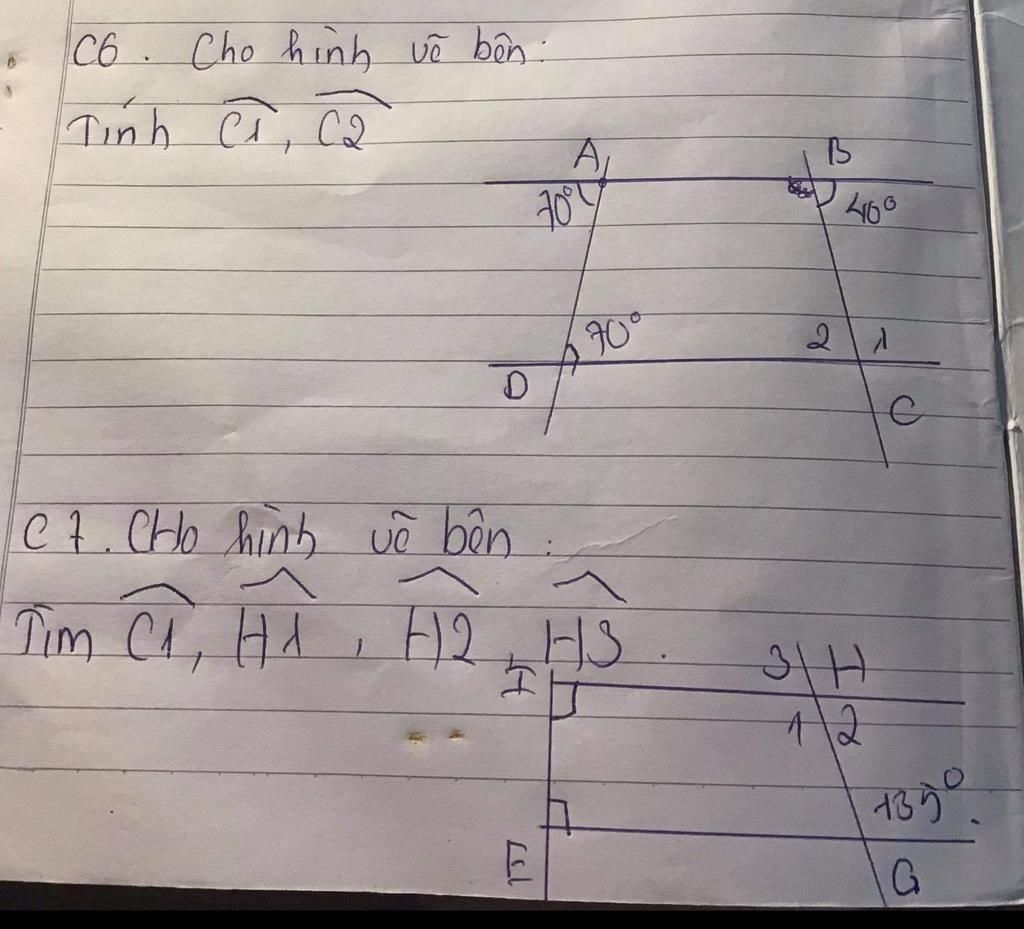 C6. Cho hình vẽ bên:
Tính C1, C2
A
B
70°
40°
70°
2
1
D
C
C7. Cho hình vẽ bên:
Tìm C1, H1, H2, H3.
I
3
H
1
2
135°
E
G